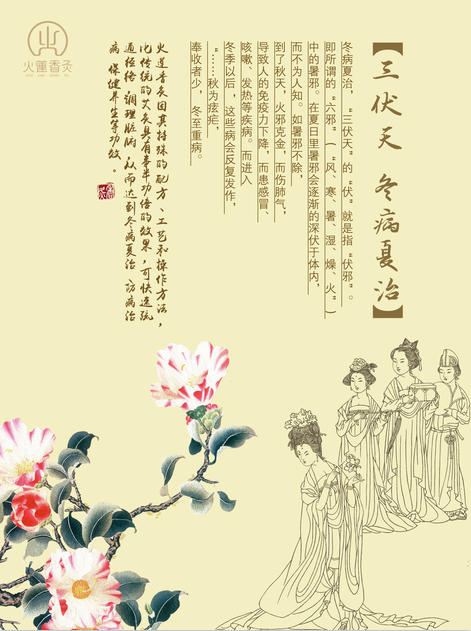 【三伏天 冬病夏治】
冬病夏治,“三伏天”的“伏”就是指“伏邪”。
即所谓的“六邪”(“风、寒、暑、湿、燥、火”)
中的暑邪。在夏日里暑邪会逐渐的深伏于体内,
而不为人知。如暑邪不除,
到了秋天,火邪克金,而伤肺气,
导致人的免疫力下降,而患感冒、
咳嗽、发热等疾病。而进入
冬季以后,这些病会反复发作,
“……秋为痎疟,
奉收者少,冬至重病。
香灸因其特殊的配方、工艺和操作方法,
比传统的艾灸具有事半功倍的效果,可快速疏
通经络 调理脏腑,从而达到冬病夏治 防病治
病 保健养生等功效。